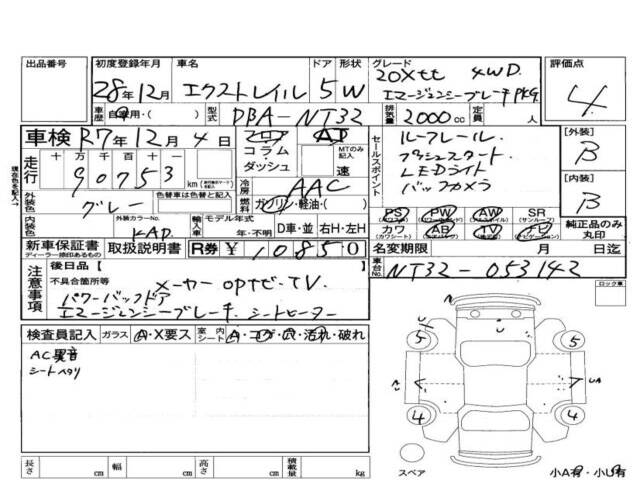 出品番号 初度登録年月 車名 ドア 形状 グレード 評価点
28年12月 エクストレイル 5 W 20Xtt 4WD
エマージェンシーブレーキPKG
車歴 自家用・( ) 型式 DBA-NT32 排気量 2000cc 定員 人 4
車検 R7年12月4日 フロア AT
コラム MTのみ記入
ダッシュ 速
走行 十万千百十一
90753 km
セールスポイント ルーフレール.
プッシュスタート
LEDライト
バックカメラ
[外装] B
[内装] B
現在色を記入→ 外装色 グレー 色替車は色替前色 ( ) 冷房 AAC
燃料 ガソリン・軽油・( )
内装色 外装カラーNo. KAD 輸入車 モデル年式 年・不明 D車・並 右H・左H
PS PW AW SR (サンルーフ)
カワ (カワシート) AB TV ナビ
純正品のみ丸印
新車保証書 取扱説明書 R券 ¥10850 名変期限 月 日迄
ディーラー捺印あるもの
車台No. NT32-053142
注意事項 後日品【 】
不具合箇所等 メーカーopナビ.TV.
パワーバックドア
エマージェンシーブレーキ. シートヒーター
ロック車
検査員記入 ガラス A・X要ス 室内シート A・コゲ・穴・汚れ・破れ
AC異音
シートヘタリ
5 5
A UA
4 4
スペア
小A有・小U有
長さ cm 幅 cm 高さ cm 積載量 kg